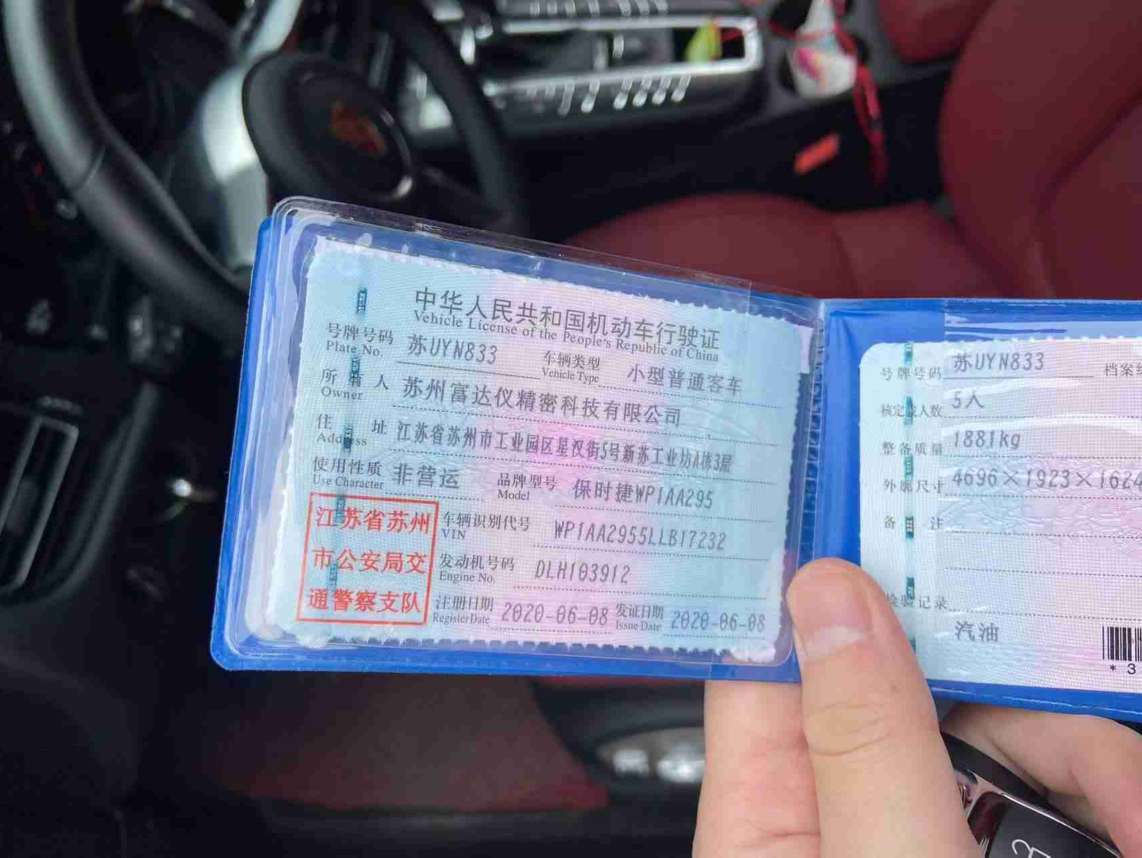 中华人民共和国机动车行驶证
Vehicle License of the People's Republic of China
号牌号码 苏UYN833 车辆类型 小型普通客车
Plate No. Vehicle Type
所有人 苏州富达仪精密科技有限公司
Owner
住址 江苏省苏州市工业园区星汉街5号新苏工业坊A栋3层
Address
使用性质 非营运 品牌型号 保时捷WP1AA295
Use Character Model
江苏省苏州
市公安局交
通警察支队
车辆识别代号 WP1AA2955LLB17232
VIN
发动机号码 DLH103912
Engine No.
注册日期 2020-06-08 发证日期 2020-06-08
Register Date Issue Date
号牌号码 苏UYN833 档案
核定载人数 5人
整备质量 1881kg
外廓尺寸 4696×1923×1624
备注
检验记录
汽油
*3